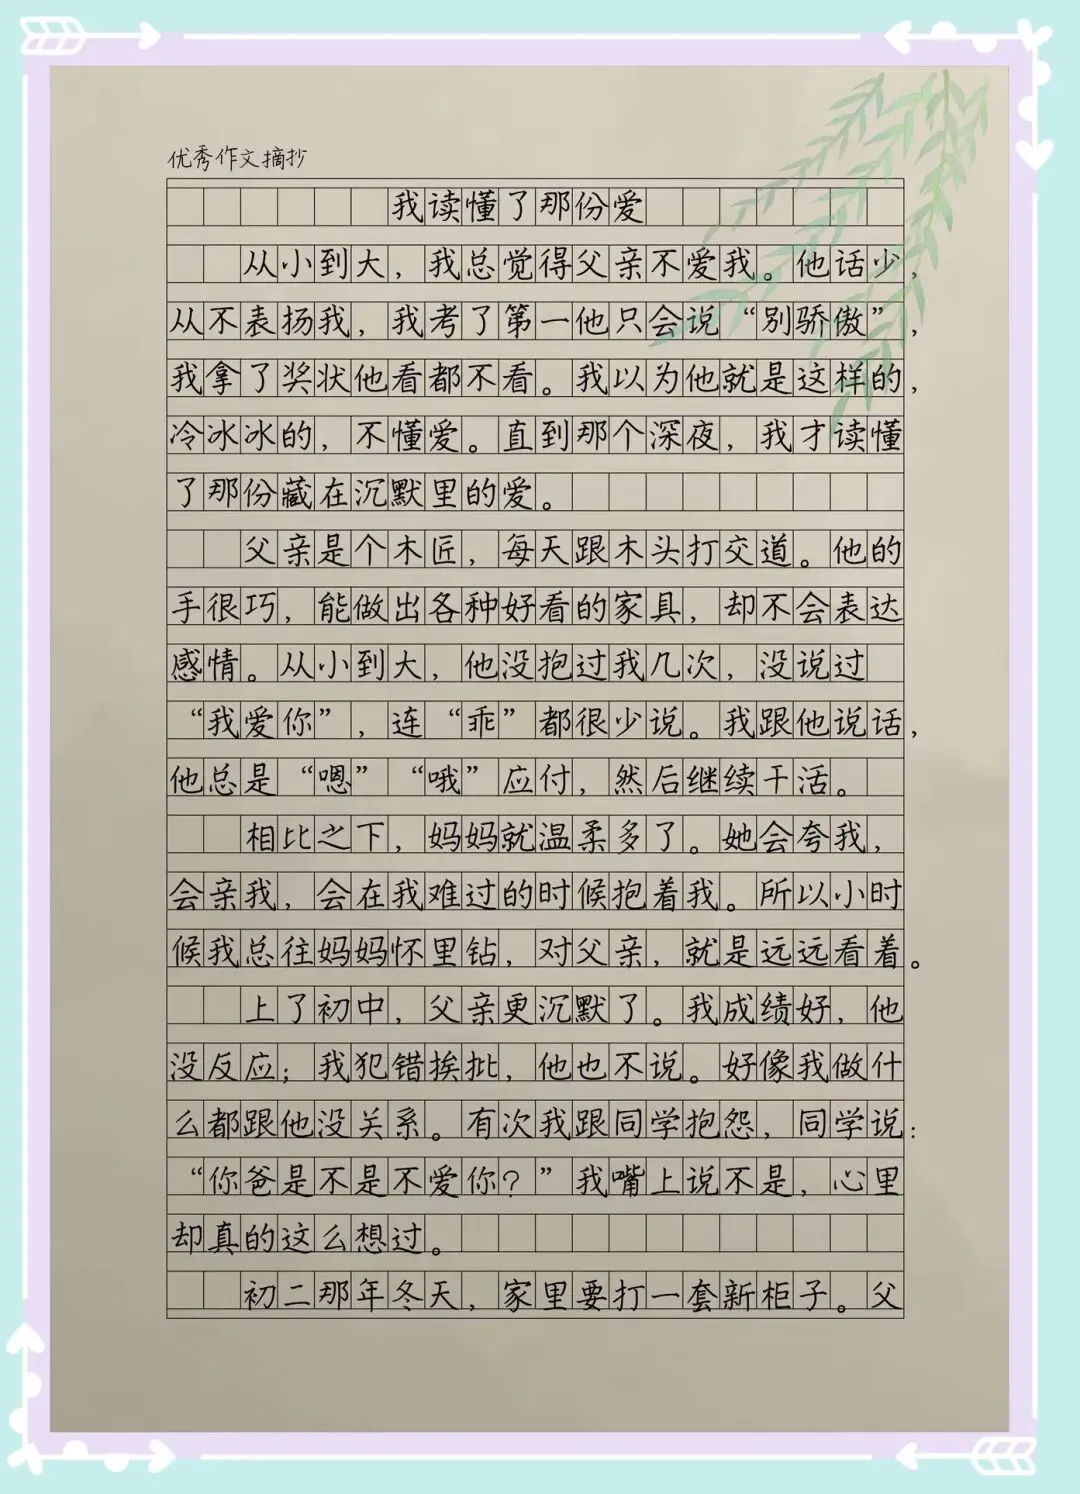 优秀作文摘抄
我读懂了那份爱
从小到大，我总觉得父亲不爱我。他话少，
从不表扬我，我考了第一他只会说“别骄傲”，
我拿了奖状他看都不看。我以为他就是这样的，
冷冰冰的，不懂爱。直到那个深夜，我才读懂
了那份藏在沉默里的爱。
父亲是个木匠，每天跟木头打交道。他的
手很巧，能做出各种好看的家具，却不会表达
感情。从小到大，他没抱过我几次，没说过
“我爱你”，连“乖”都很少说。我跟他说话，
他总是“嗯”“哦”应付，然后继续干活。
相比之下，妈妈就温柔多了。她会夸我，
会亲我，会在我难过的时候抱着我。所以小时
候我总往妈妈怀里钻，对父亲，就是远远看着。
上了初中，父亲更沉默了。我成绩好，他
没反应；我犯错挨批，他也不说。好像我做什
么都跟他没关系。有次我跟同学抱怨，同学说：
“你爸是不是不爱你？”我嘴上说不是，心里
却真的这么想过。
初二那年冬天，家里要打一套新柜子。父